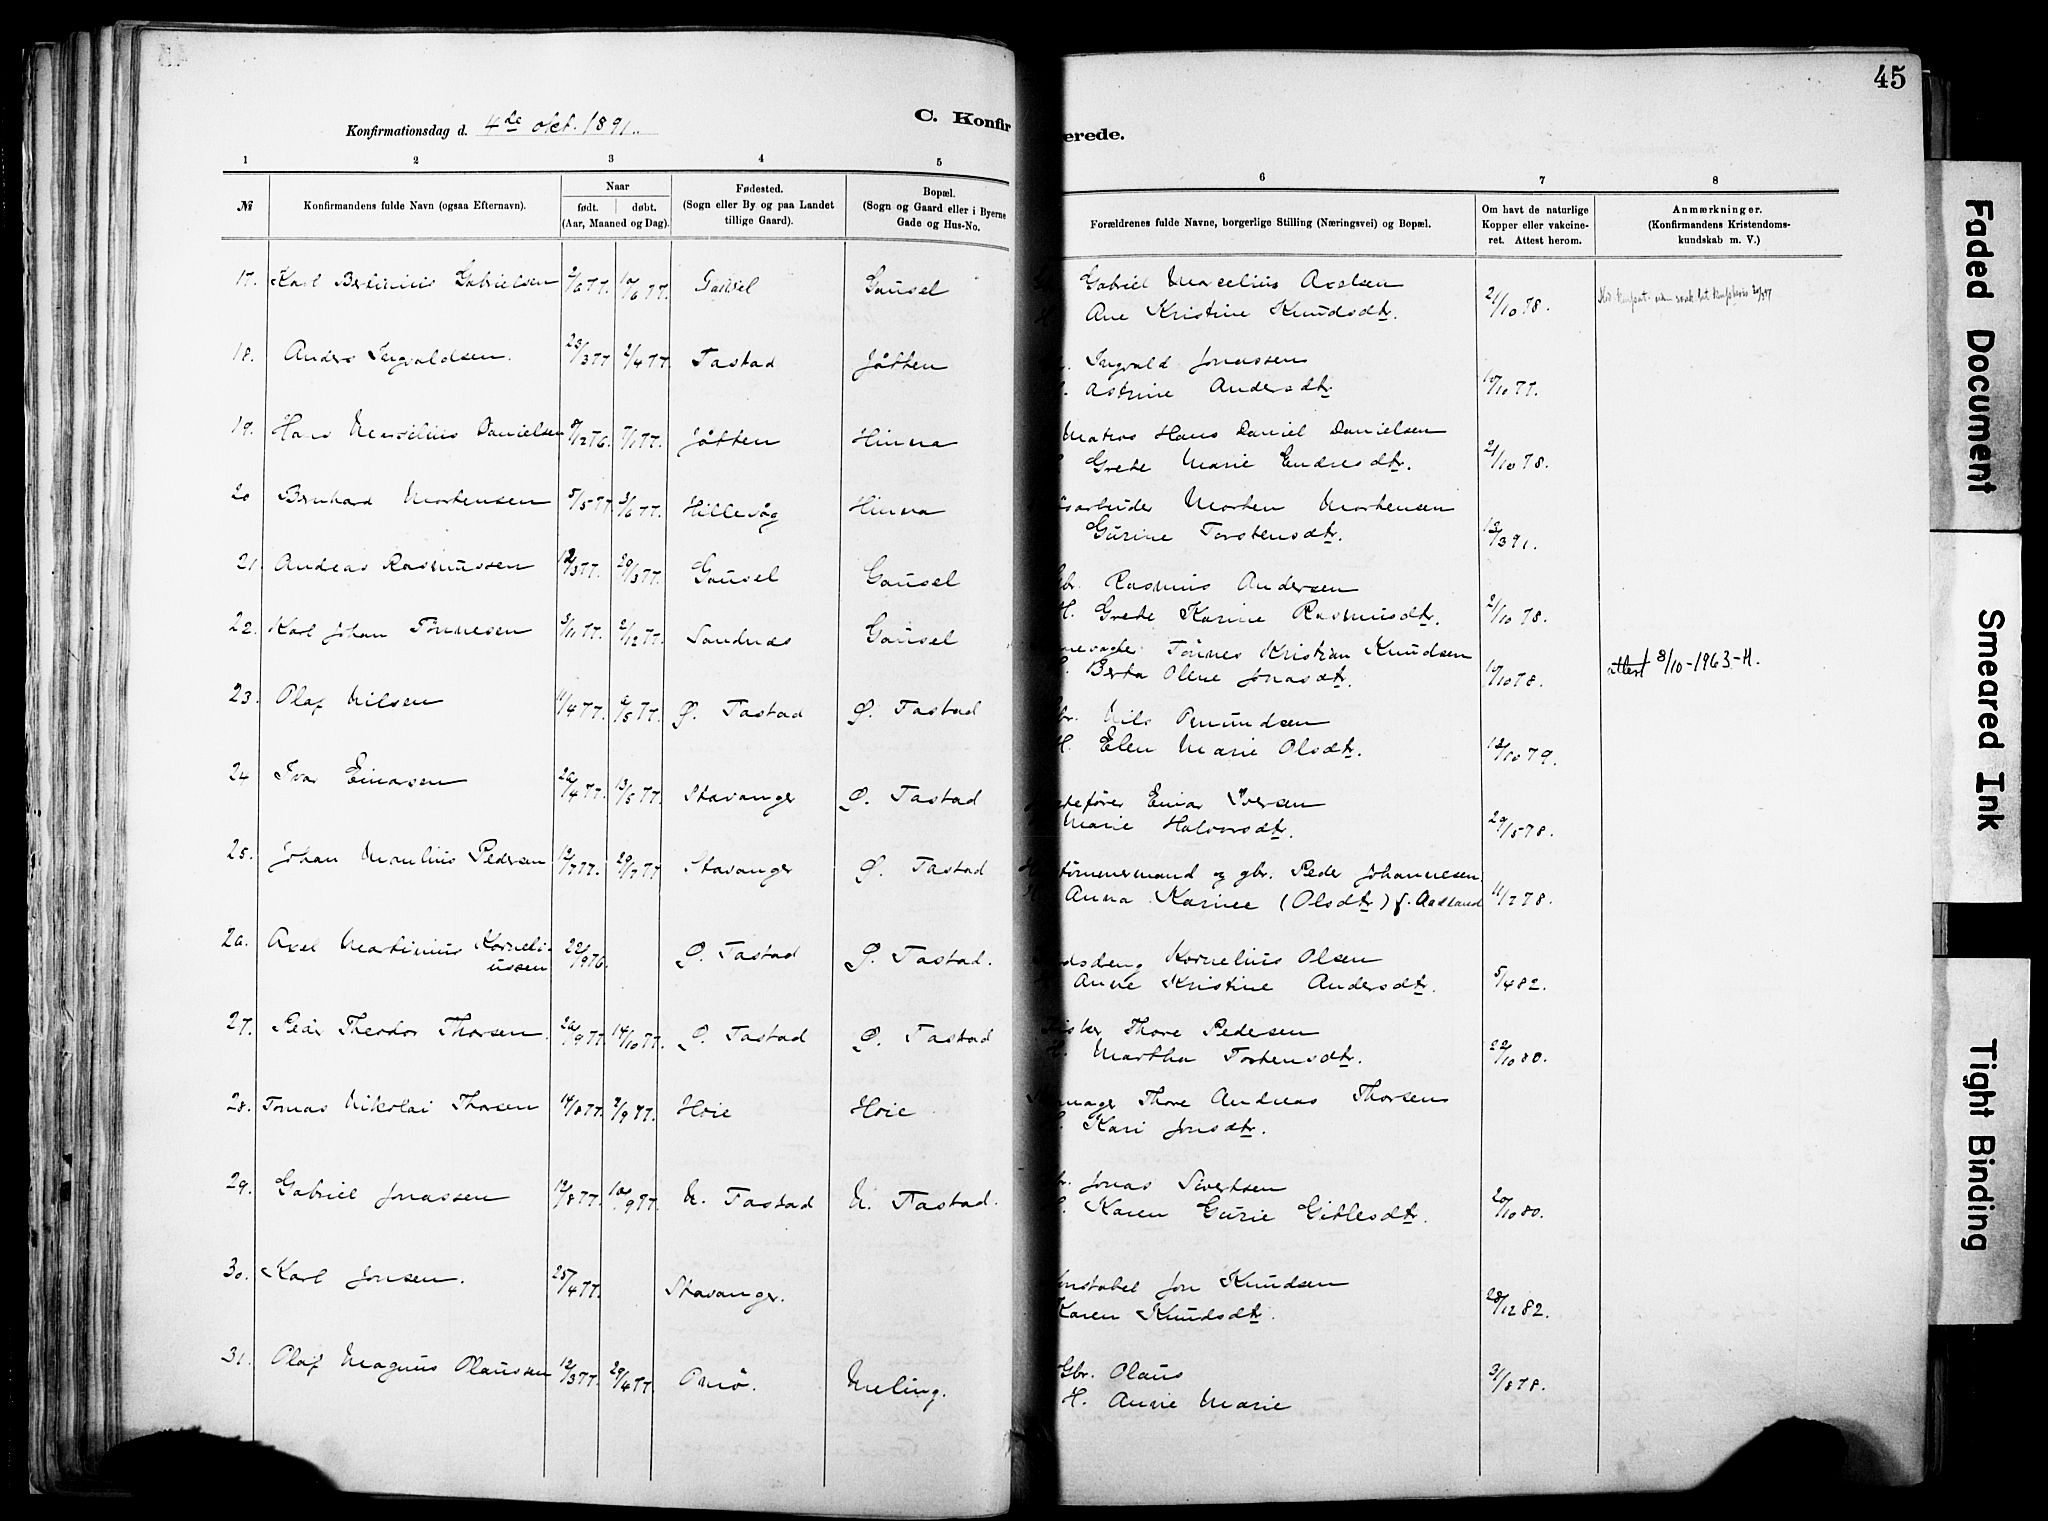 45
Konfirmationsdag d. 4de okt. 1891.
C. Konfir
erede.
1 2 3 4 5 6 7 8
№ Konfirmandens fulde Navn (ogsaa Efternavn). Naar født. døbt. (Aar, Maaned og Dag). Fødested. (Sogn eller By og paa Landet tillige Gaard). Bopæl. (Sogn og Gaard eller i Byerne Gade og Hus-No. Forældrenes fulde Navne, borgerlige Stilling (Næringsvei) og Bopæl. Om havt de naturlige Kopper eller vakcineret. Attest herom. Anmærkninger. (Konfirmandens Kristendomskundskab m. V.)
17. Karl Bertinius Gabrielsen 2/6 77. 10/6 77. Gausel Gausel Gabriel Marselius Axelsen
Ane Kristine Knudsdtr. 21/10 78.
18. Anders Ingvaldsen. 23/3 77 2/4 77. Tastad Jåtten Ingvald Jonassen
Astrine Andersdtr 10/10 77.
19. Hans Marselius Danielsen 9/12 76. 7/1 77. Jåtten Hinna Matros Hans Daniel Danielsen
Grete Marie Endresdtr. 21/10 78.
20 Bernhard Mortensen 5/5 77 3/6 77. Hillevåg Hinna arbeider Morten Mortensen
Gurine Torstensdtr. 13/3 91.
21. Andreas Rasmussen 12/3 77. 29/3 77. Gausel Gausel Gbr. Rasmus Andersen
H. Grete Karine Rasmusdtr. 21/10 78.
22. Karl Johan Tönnesen 3/11 77. 2/12 77. Sandnes Gausel nevogter Tönnes Kristian Knudsen
Berta Oline Jonasdtr. 10/10 78. attest 8/10-1963-H.
23. Olaf Nilsen 11/4 77. 6/5 77. Ø. Tastad Ø. Tastad br. Nils Omundsen
H. Elen Marie Olsdtr. 12/10 79.
24 Ivar Einarsen 20/4 77. 13/5 77. Stavanger Ø. Tastad efører Einar Iversen
Marie Halvorsdtr. 29/5 78.
25. Johan Monelius Pedersen 12/7 77. 29/7 77 Stavanger Ø. Tastad tömmermand og gbr. Peder Johannesen
Anna Karine (Olsdtr) f. Aadland 11/7 78.
26. Axel Martinius Korneliussen 22/9 76. Ø. Tastad Ø. Tastad. dsdeng Kornelius Olsen
Anne Kristine Andersdtr. 5/4 82.
27. Peder Theodor Thorsen. 20/9 77 14/10 77. Ø. Tastad Ø. Tastad Fisker Thore Pedersen
H. Martha Torstensdtr. 22/10 80.
28. Tomas Nikolai Thorsen 14/8 77. 2/9 77. Hoie Hoie mager Thore Andreas Thorsen
Kari Jonsdtr.
29. Gabriel Jonassen 12/8 77. 10/9 77. N. Tastad N. Tastad. br. Jonas Sivertsen
Karen Gurie Gitlesdtr. 20/10 80.
30. Karl Jonsen. 25/4 77. Stavanger. onstabel Jon Knudsen
Karen Knudsdtr. 28/12 82.
31. Olaf Magnus Olaussen 12/3 77. 29/4 77. Omö. Meling. Gbr. Olaus
H. Anne Marie 31/8 78.
Faded Document
Smeared Ink
Tight Binding